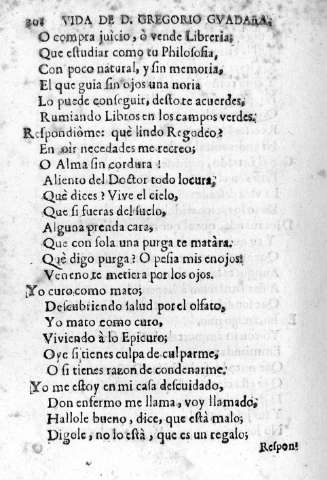 308 VIDA DE D. GREGORIO GVADAÑA.
O compra juicio, ò vende Libreria;
Que estudiar como tu Philosofia,
Con poco natural, y sin memoria,
El que guia sin ojos una noria
Lo puede conseguir, desto te acuerdes,
Rumiando Libros en los campos verdes.
Respondiòme: què lindo Regodeo?
En oir necedades me recreo;
O Alma sin cordura!
Aliento del Doctor todo locura,
Què dices? Vive el cielo,
Que si fueras del suelo,
Alguna prenda cara,
Que con sola una purga te matàra.
Què digo purga? O pesia mis enojos!
Veneno te metiera por los ojos.
Yo curo como mato;
Descubriendo salud por el olfato,
Yo mato como curo,
Viviendo à lo Epicuro;
Oye si tienes culpa de culparme,
O si tienes razon de condenarme.
Yo me estoy en mi casa descuidado,
Don enfermo me llama, voy llamado,
Hallole bueno, dice, que està malo;
Digole, no lo està, que es un regalo;
Respon-